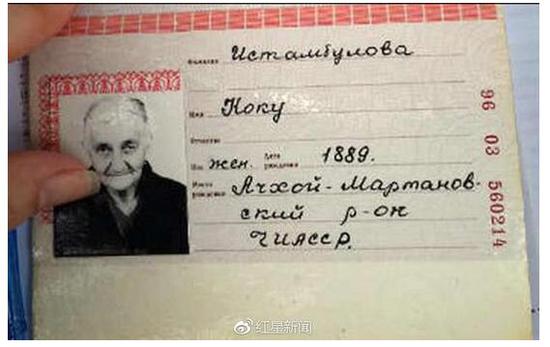 Фамилия Истамбулова
Имя Коку
Отчество
Пол жен. Дата рождения 1889.
Место рождения Ачхой-Мартанов-
ский р-он
ЧИАССР.
96 03 560214
红星新闻